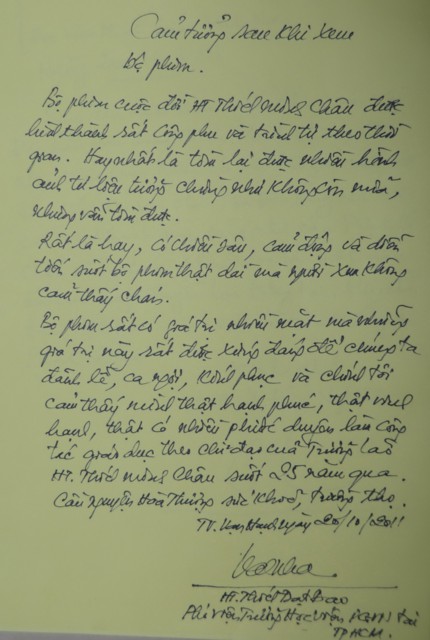 Cảm tưởng sau khi xem
bộ phim.
Bộ phim cuộc đời HT Thích Minh Châu được
hình thành rất công phu và trình tự theo thời
gian. Hay nhất là tìm lại được nhiều hình
ảnh tư liệu tưởng chừng như không còn nữa,
nhưng vẫn tìm được.
Rất là hay, có chiều sâu, cảm động và diễn
suốt bộ phim thật dài mà người xem không
cảm thấy chán.
Bộ phim rất có giá trị nhiều mặt mà những
giá trị này rất được xứng đáng để chúng ta
đảnh lễ, ca ngợi, kính phục và chúng tôi
cảm thấy mình thật hạnh phúc, thật vinh
hạnh, thật có nhiều phước duyên làm công
tác giáo dục theo chỉ đạo của Trưởng lão
HT. Thích Minh Châu suốt 25 năm qua.
Cầu nguyện Hoà Thượng sức khoẻ, trường thọ.
TV. Vạn Hạnh ngày 20/10/2011
HT. Thích Đạt Đạo
Phó Viện Trưởng Học Viện PGVN tại
TP HCM.